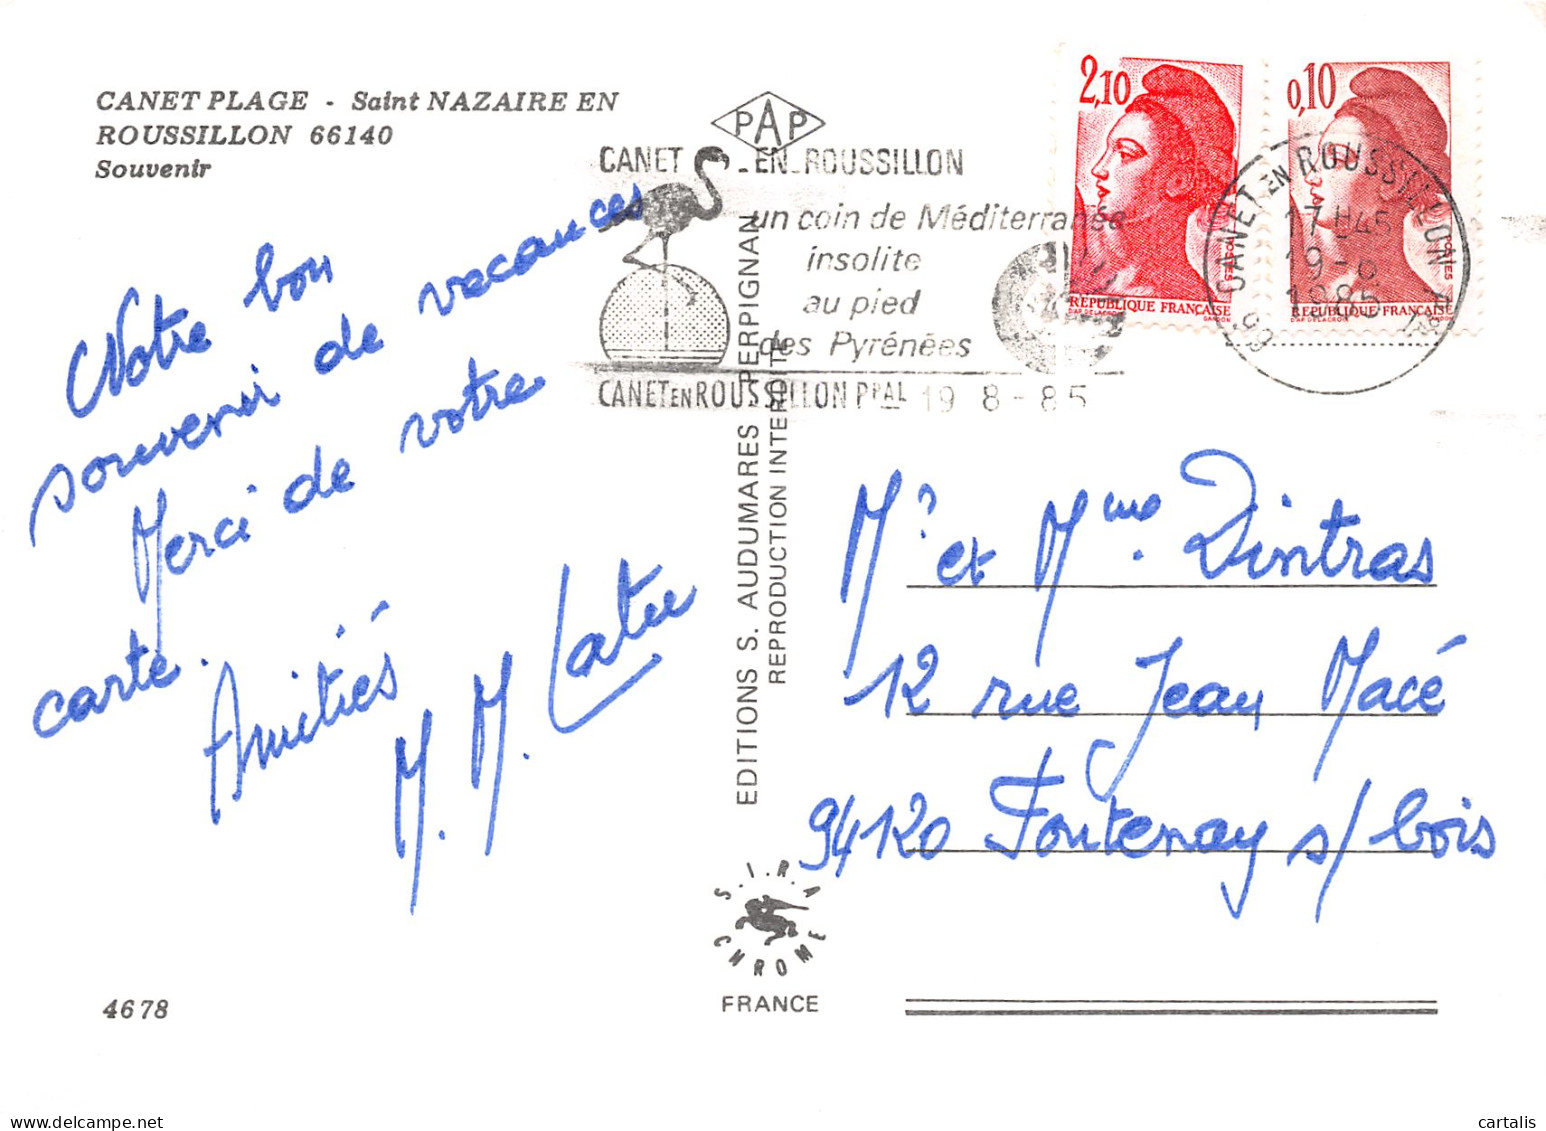 CANET PLAGE - Saint NAZAIRE EN
ROUSSILLON 66140
Souvenir
Notre bon
souvenir de vacances
Merci de votre
carte.
Amitiés
M. M. Latu
4678
PAP
CANET-EN-ROUSSILLON
un coin de Méditerranée
insolite
au pied
des Pyrénées
CANET EN ROUSSILLON PPAL 19 8-85
EDITIONS S. AUDUMARES PERPIGNAN
REPRODUCTION INTERDITE
S.I.R.A
CHROME
FRANCE
2,10
RÉPUBLIQUE FRANÇAISE
D'AP. DELACROIX GANDON
0,10
POSTES
RÉPUBLIQUE FRANÇAISE
D'AP. DELACROIX GANDON
66 CANET EN ROUSSILLON PPAL
17H45
19-8
1985
Mr et Mme Dintras
12 rue Jean Macé
94120 Fontenay s/ bois
www.cartalis.com